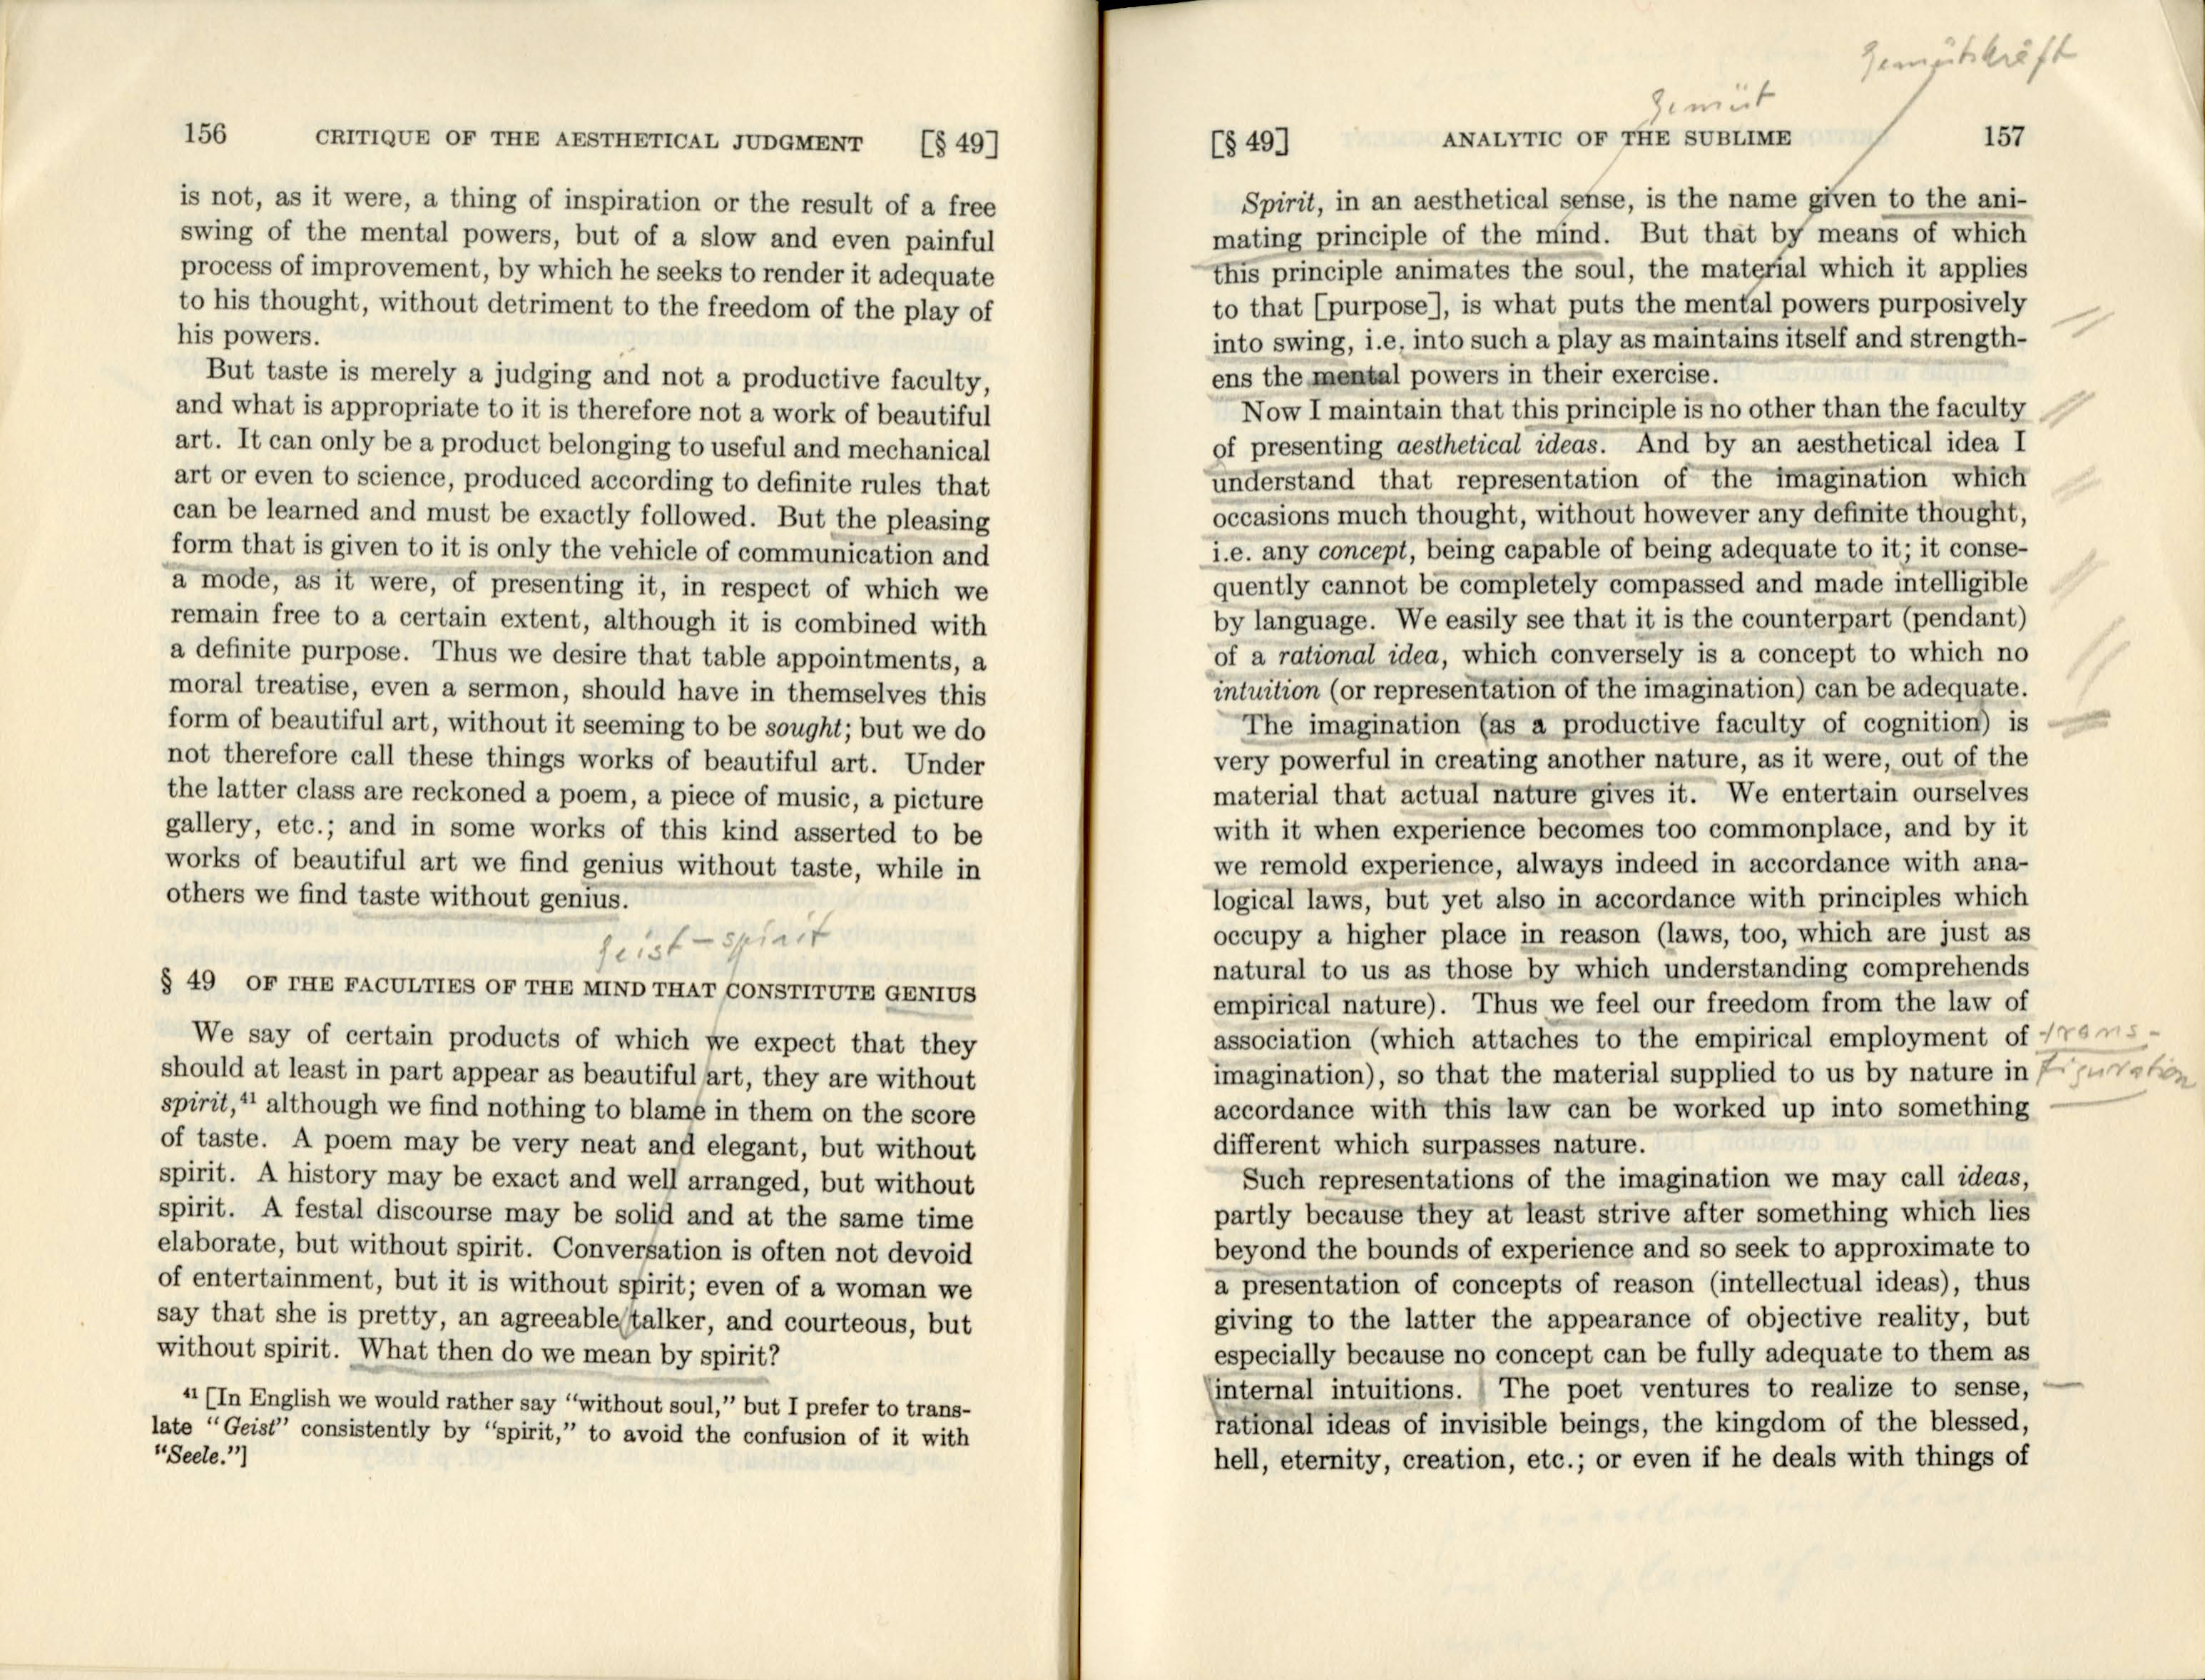 156 CRITIQUE OF THE AESTHETICAL JUDGMENT [§ 49]
is not, as it were, a thing of inspiration or the result of a free
swing of the mental powers, but of a slow and even painful
process of improvement, by which he seeks to render it adequate
to his thought, without detriment to the freedom of the play of
his powers.
But taste is merely a judging and not a productive faculty,
and what is appropriate to it is therefore not a work of beautiful
art. It can only be a product belonging to useful and mechanical
art or even to science, produced according to definite rules that
can be learned and must be exactly followed. But the pleasing
form that is given to it is only the vehicle of communication and
a mode, as it were, of presenting it, in respect of which we
remain free to a certain extent, although it is combined with
a definite purpose. Thus we desire that table appointments, a
moral treatise, even a sermon, should have in themselves this
form of beautiful art, without it seeming to be sought; but we do
not therefore call these things works of beautiful art. Under
the latter class are reckoned a poem, a piece of music, a picture
gallery, etc.; and in some works of this kind asserted to be
works of beautiful art we find genius without taste, while in
others we find taste without genius.
geist – spirit
§ 49 OF THE FACULTIES OF THE MIND THAT CONSTITUTE GENIUS
We say of certain products of which we expect that they
should at least in part appear as beautiful art, they are without
spirit,⁴¹ although we find nothing to blame in them on the score
of taste. A poem may be very neat and elegant, but without
spirit. A history may be exact and well arranged, but without
spirit. A festal discourse may be solid and at the same time
elaborate, but without spirit. Conversation is often not devoid
of entertainment, but it is without spirit; even of a woman we
say that she is pretty, an agreeable talker, and courteous, but
without spirit. What then do we mean by spirit?
⁴¹ [In English we would rather say "without soul," but I prefer to trans-
late "Geist" consistently by "spirit," to avoid the confusion of it with
"Seele."]
Gemütskräft
Gemüt
[§ 49] ANALYTIC OF THE SUBLIME 157
Spirit, in an aesthetical sense, is the name given to the ani-
mating principle of the mind. But that by means of which
this principle animates the soul, the material which it applies
to that [purpose], is what puts the mental powers purposively
into swing, i.e. into such a play as maintains itself and strength-
ens the mental powers in their exercise.
Now I maintain that this principle is no other than the faculty
of presenting aesthetical ideas. And by an aesthetical idea I
understand that representation of the imagination which
occasions much thought, without however any definite thought,
i.e. any concept, being capable of being adequate to it; it conse-
quently cannot be completely compassed and made intelligible
by language. We easily see that it is the counterpart (pendant)
of a rational idea, which conversely is a concept to which no
intuition (or representation of the imagination) can be adequate.
The imagination (as a productive faculty of cognition) is
very powerful in creating another nature, as it were, out of the
material that actual nature gives it. We entertain ourselves
with it when experience becomes too commonplace, and by it
we remold experience, always indeed in accordance with ana-
logical laws, but yet also in accordance with principles which
occupy a higher place in reason (laws, too, which are just as
natural to us as those by which understanding comprehends
empirical nature). Thus we feel our freedom from the law of
association (which attaches to the empirical employment of trans-
imagination), so that the material supplied to us by nature in figuration
accordance with this law can be worked up into something
different which surpasses nature.
Such representations of the imagination we may call ideas,
partly because they at least strive after something which lies
beyond the bounds of experience and so seek to approximate to
a presentation of concepts of reason (intellectual ideas), thus
giving to the latter the appearance of objective reality, but
especially because no concept can be fully adequate to them as
internal intuitions. The poet ventures to realize to sense,
rational ideas of invisible beings, the kingdom of the blessed,
hell, eternity, creation, etc.; or even if he deals with things of